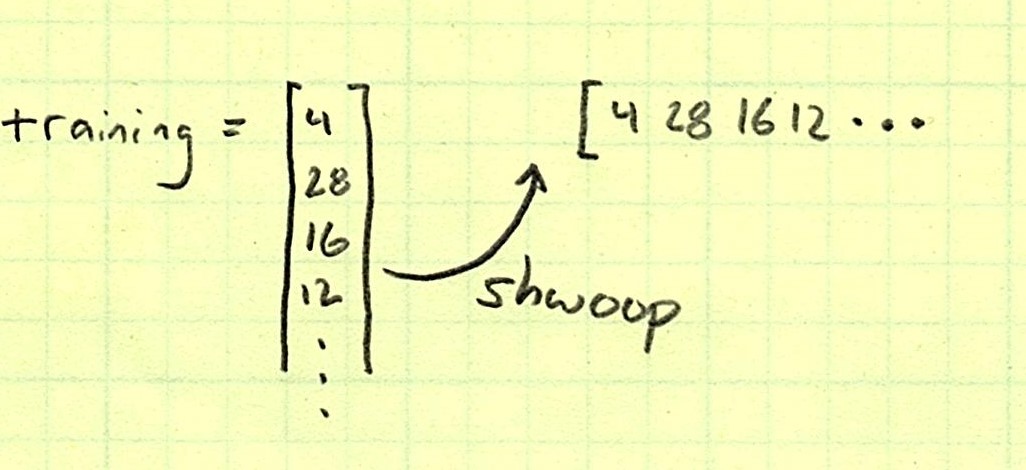 training = [4 28 16 12 ⋮]
[4 28 16 12 ...
shwoop